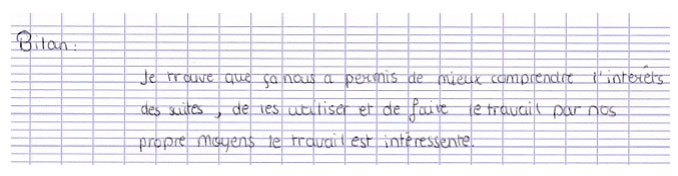 Bilan:
Je trouve que ça nous a permis de mieux comprendre l'interêts
des suites, de les utiliser et de faire le travail par nos
propre moyens le travail est intéressente.